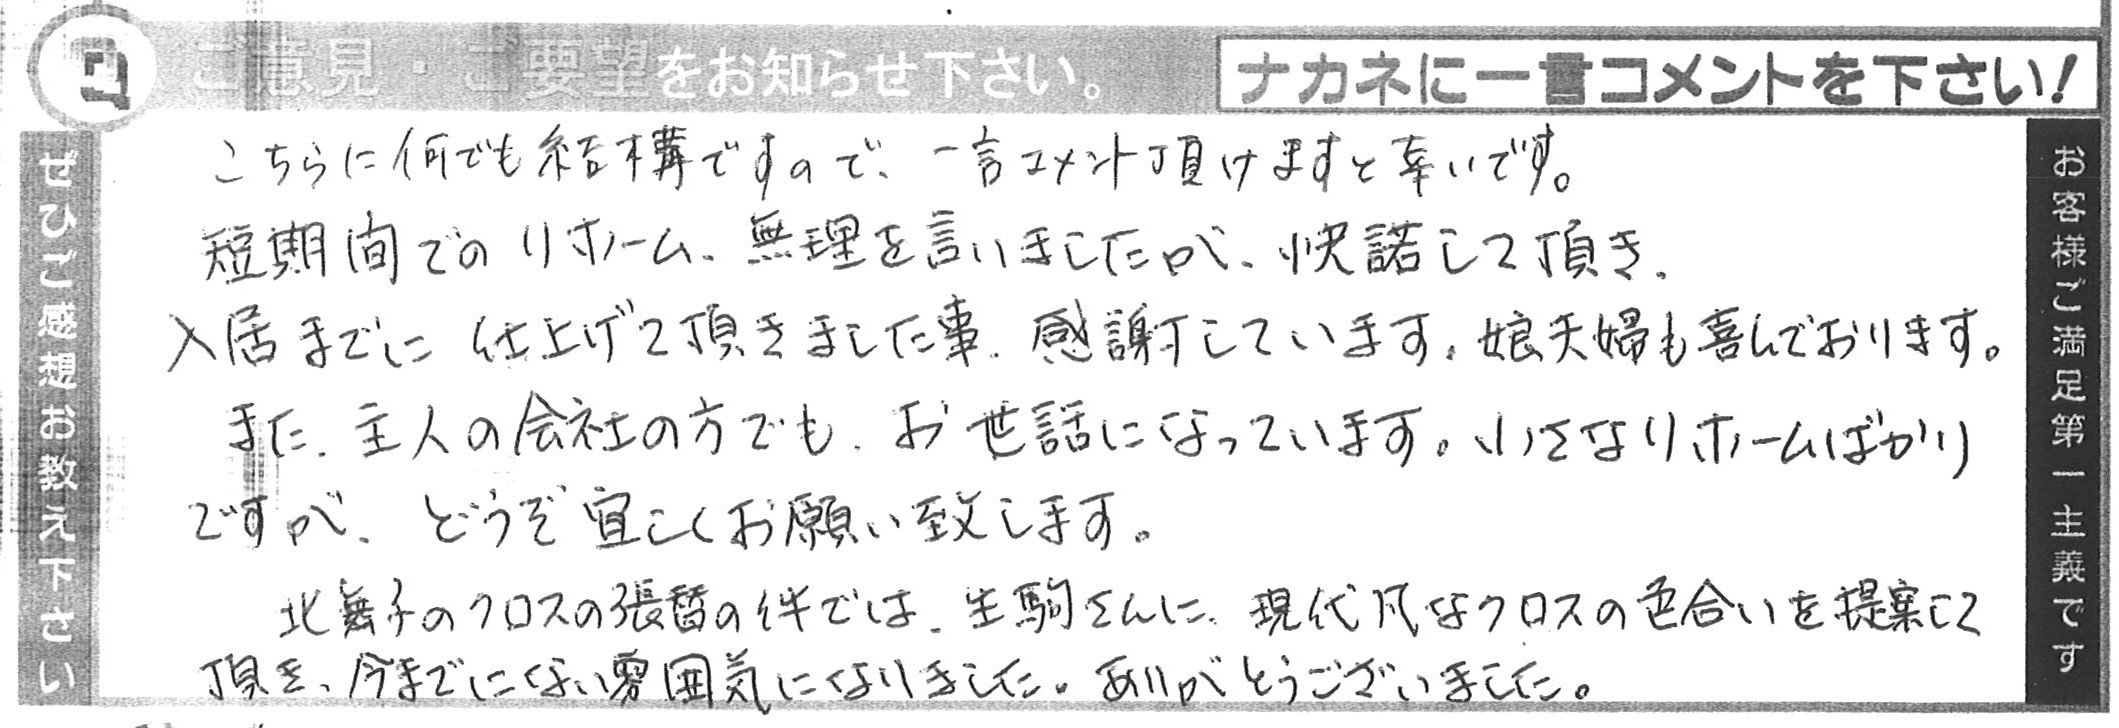 ご意見・ご要望をお知らせ下さい。
ナカネに一言コメントを下さい!
ぜひご感想お教え下さい
こちらに何でも結構ですので、一言コメント頂けますと幸いです。
短期間でのリホーム、無理を言いましたが、快諾して頂き、
入居までに仕上げて頂きました事、感謝しています。娘夫婦も喜んでおります。
また、主人の会社の方でも、お世話になっています。小さなリホームばかり
ですが、どうぞ宜しくお願い致します。
北舞子のクロスの張替の件では、生駒さんに、現代風なクロスの色合いを提案して
頂き、今までにない雰囲気になりました。ありがとうございました。
お客様ご満足第一主義です